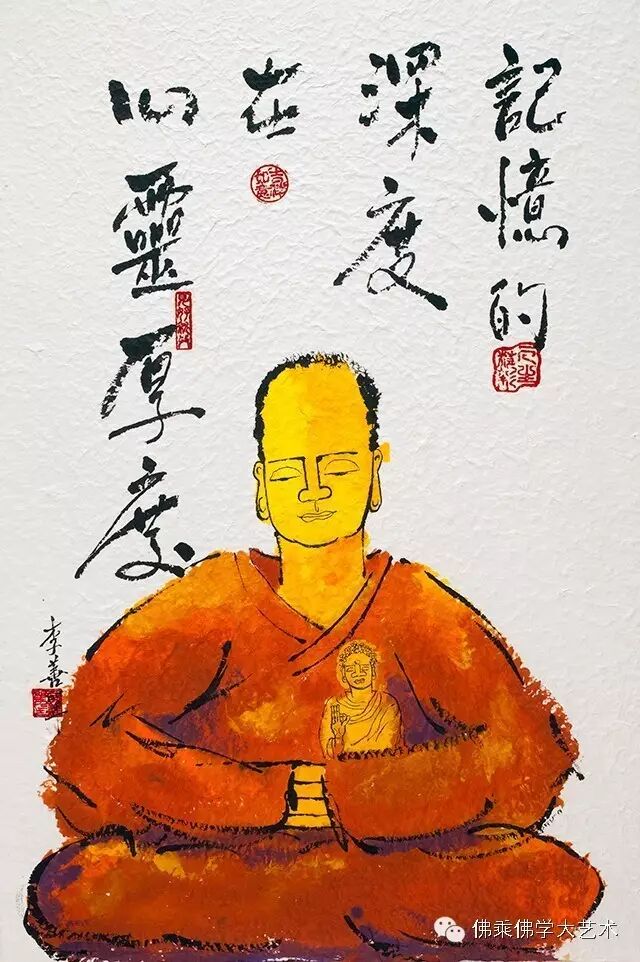 記憶的
深度
在
心靈厚度
李善
佛乘佛学大艺术